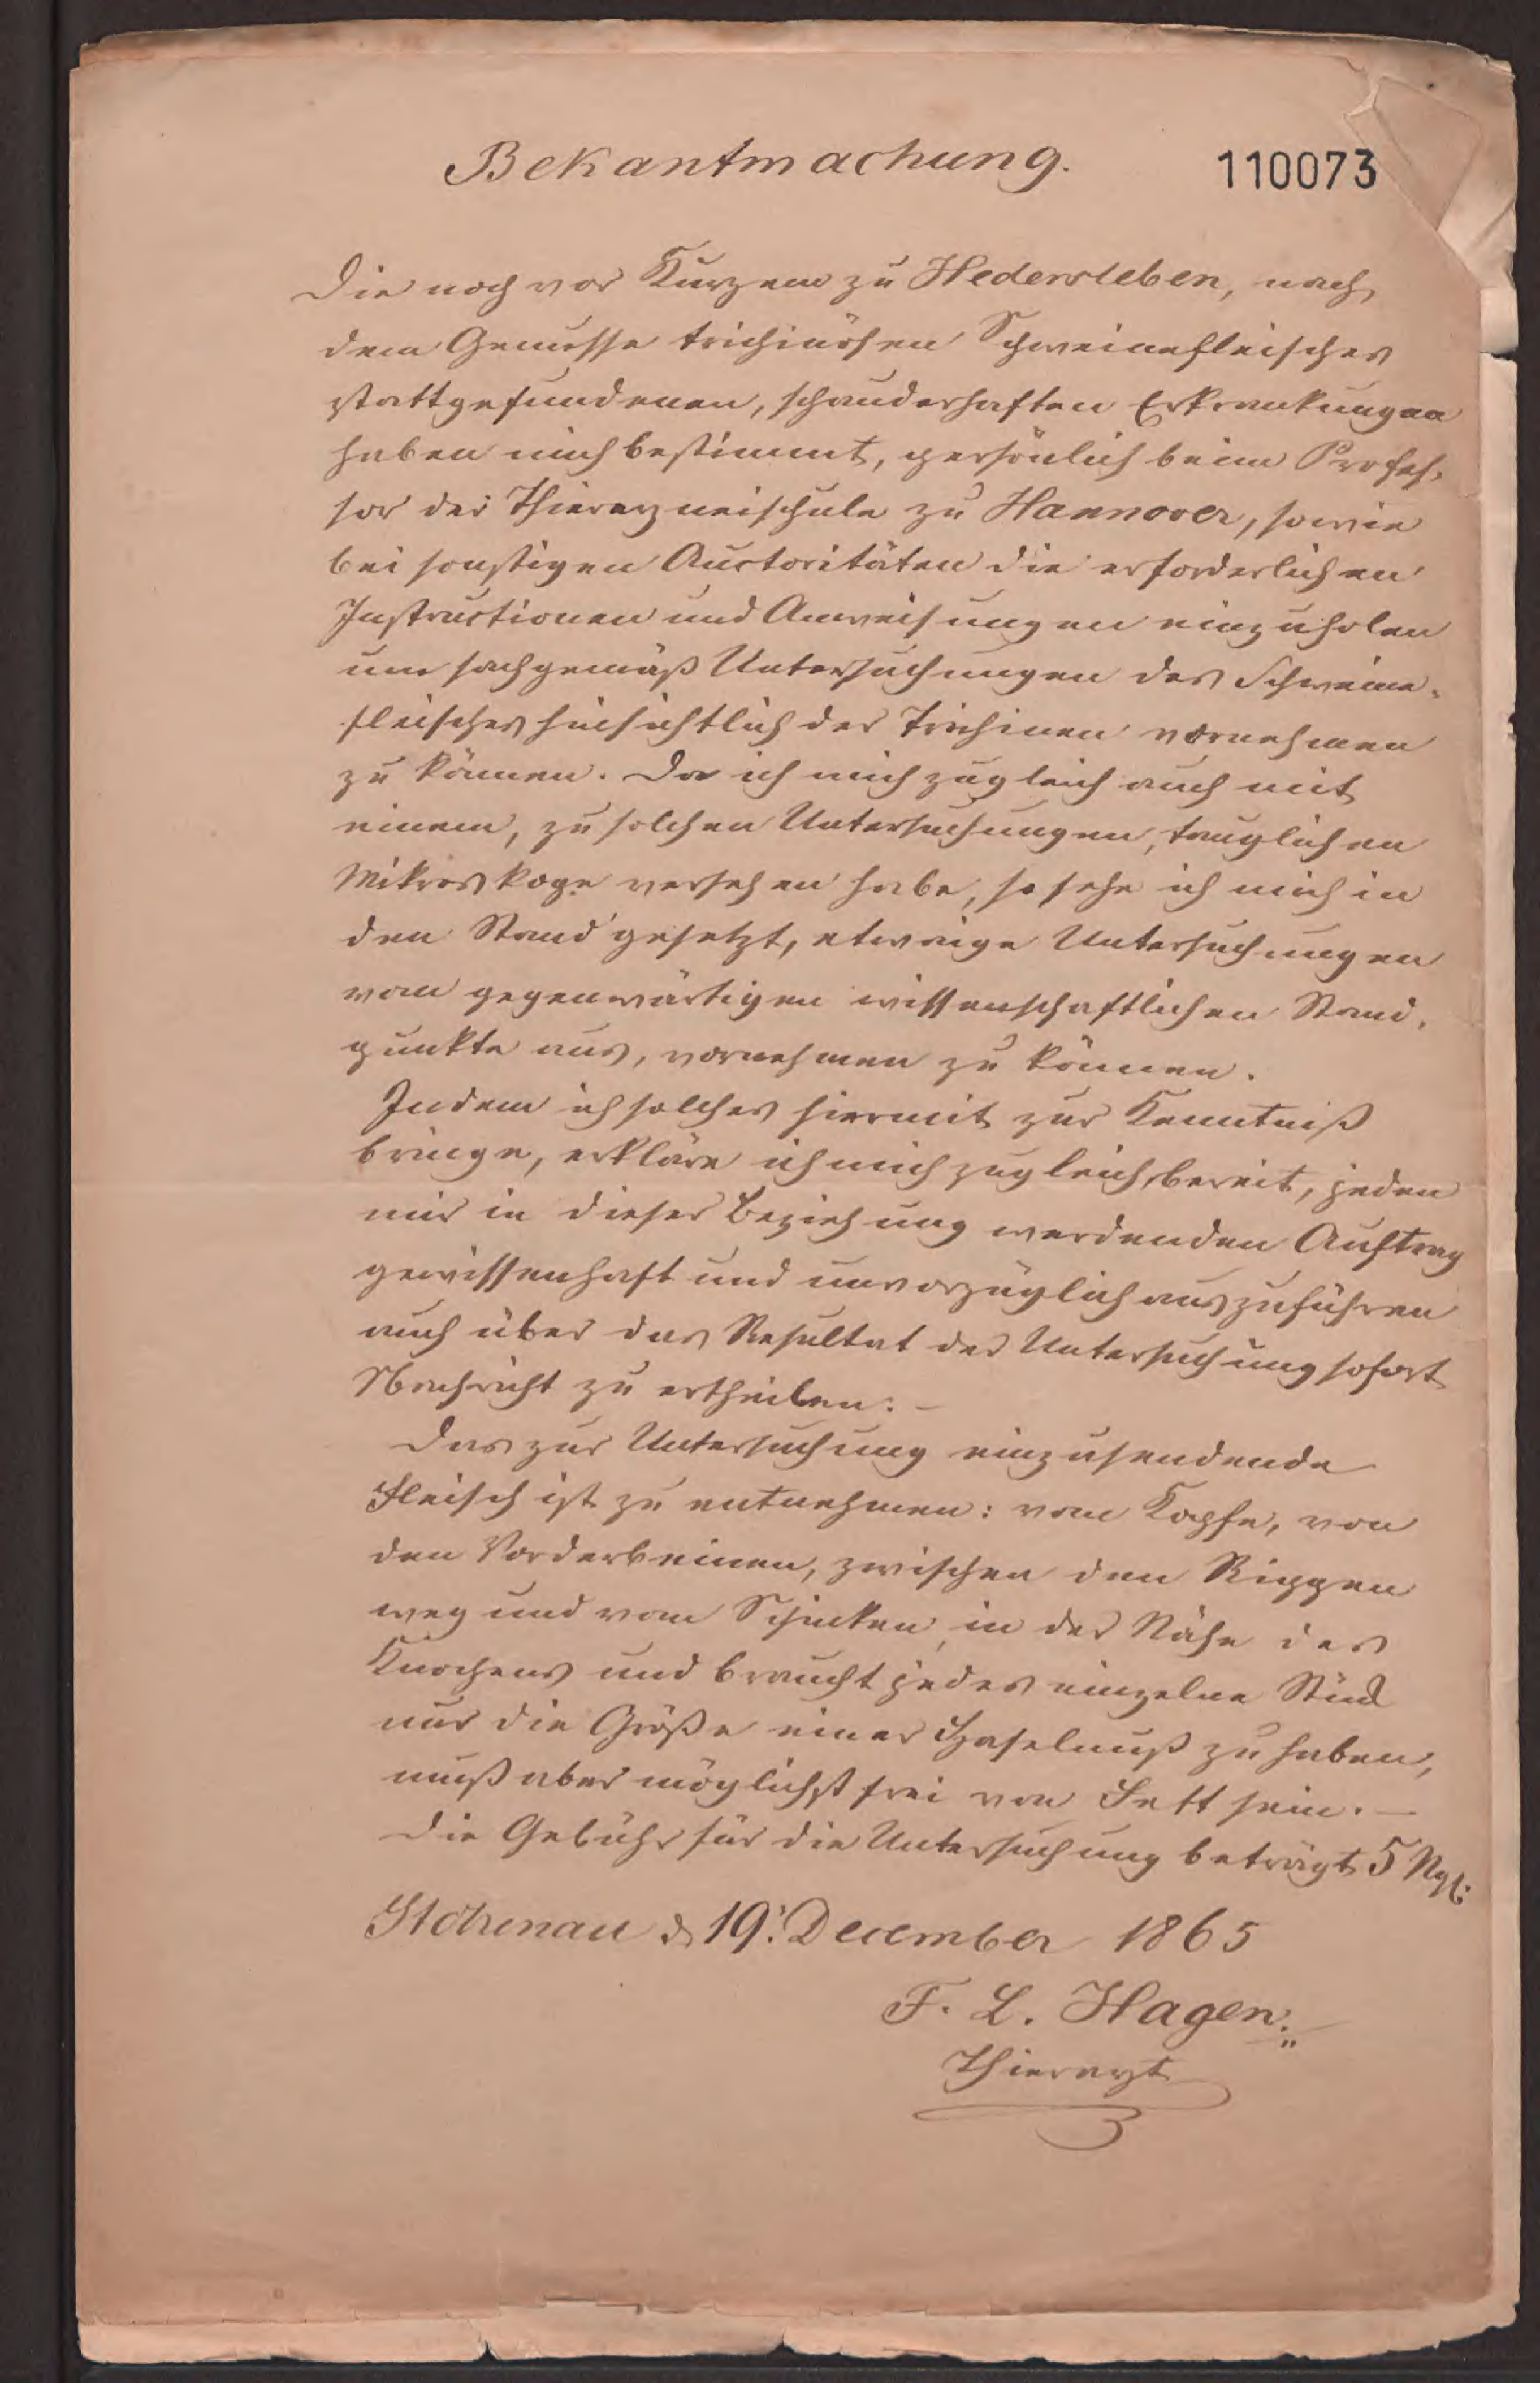 Bekantmachung.
110073
Die noch vor Kurzem zu Hedersleben, nach
dem Genusse trichinösen Schweinefleisches
stattgefundenen, schauderhaften Erkrankungen
haben mich bestimmt, persönlich beim Profes-
sor der Thierarzneischule zu Hannover, sowie
bei sonstigen Auctoritäten die erforderlichen
Instructionen und Anweisungen einzuholen
um sachgemäß Untersuchungen des Schweine-
fleisches hinsichtlich der Trichinen vornehmen
zu können. Da ich mich zugleich auch mit
einem, zu solchen Untersuchungen, tauglichen
Mikroskope versehen habe, so sehe ich mich in
den Stand gesetzt, etwaige Untersuchungen
vom gegenwärtigen wissenschaftlichen Stand-
punkte aus, vornehmen zu können.
Indem ich solches hiermit zur Kenntniß
bringe, erkläre ich mich zugleich bereit, jeden
mir in dieser Beziehung werdenden Auftrag
gewissenhaft und unvorzüglich auszuführen
auch über das Resultat der Untersuchung sofort
Nachricht zu ertheilen. –
Das zur Untersuchung einzusendende
Fleisch ist zu entnehmen: vom Kopfe, von
den Vorderbeinen, zwischen den Rippen
weg und vom Schinken, in der Nähe des
Knochens und braucht jedes einzelne Stück
nur die Größe einer Haselnuß zu haben,
muß aber möglichst frei von Fett sein. –
Die Gebühr für die Untersuchung beträgt 5 Ngr.
Stolzenau d. 19. December 1865
F. L. Hagen.
Thierarzt